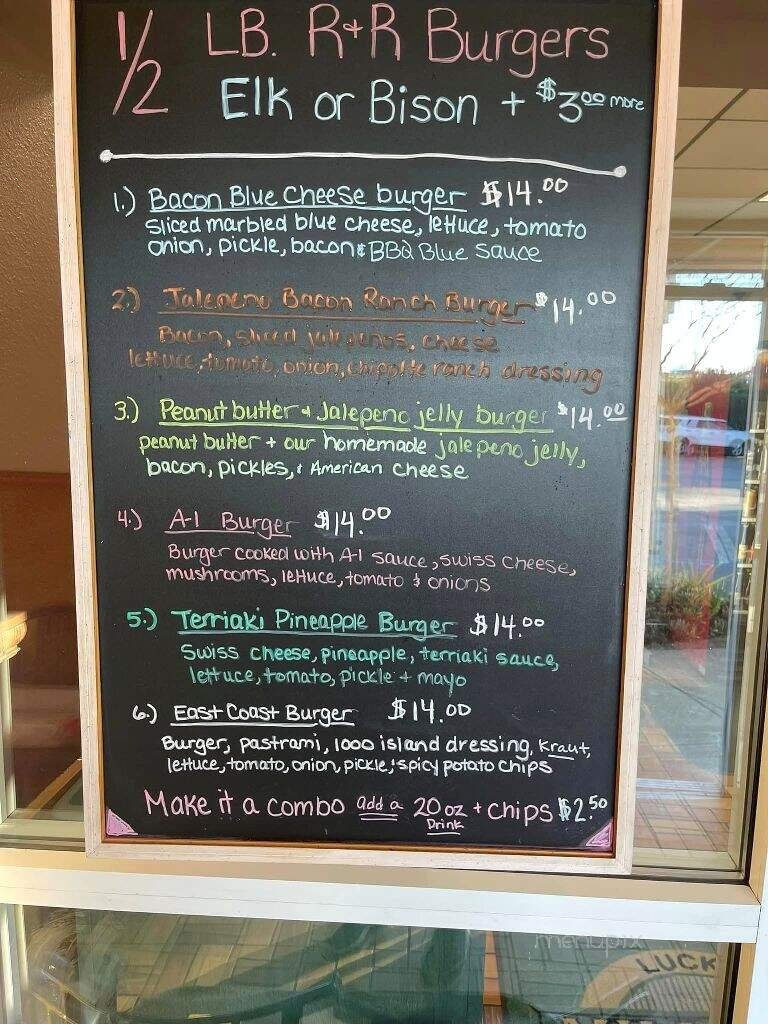 1/2 LB. R+R Burgers
Elk or Bison + $3.00 more
1.) Bacon Blue Cheese burger $14.00
sliced marbled blue cheese, lettuce, tomato
onion, pickle, bacon & BBQ Blue sauce
2.) Jalepeno Bacon Ranch Burger $14.00
Bacon, sliced jalepenos, cheese
lettuce, tomato, onion, chipotle ranch dressing
3.) Peanut butter & Jalepeno jelly burger $14.00
peanut butter + our homemade jalepeno jelly,
bacon, pickles, & American cheese
4.) A-1 Burger $14.00
Burger cooked with A-1 sauce, swiss cheese,
mushrooms, lettuce, tomato & onions
5.) Terriaki Pineapple Burger $14.00
Swiss cheese, pineapple, terriaki sauce,
lettuce, tomato, pickle + mayo
6.) East Coast Burger $14.00
Burger, pastrami, 1000 island dressing, kraut,
lettuce, tomato, onion, pickle, & spicy potato chips
Make it a combo add a 20 oz + chips $2.50
Drink
menupix
LUCK